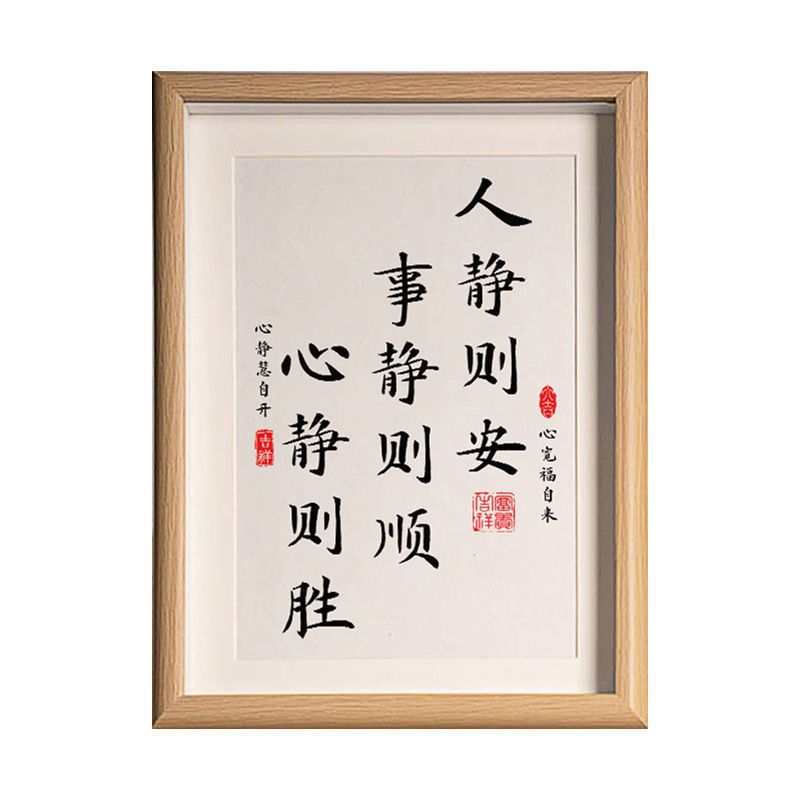 心宽福自来
人静则安
事静则顺
心静则胜
心静慧自开
大吉
富贵吉祥
吉祥